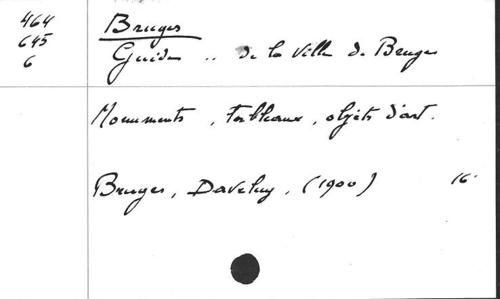 464
645
6
Bruges
Guide .. de la ville de Bruges
Monuments, tableaux, objets d'art.
Bruges, Daveluy, (1900) 16°